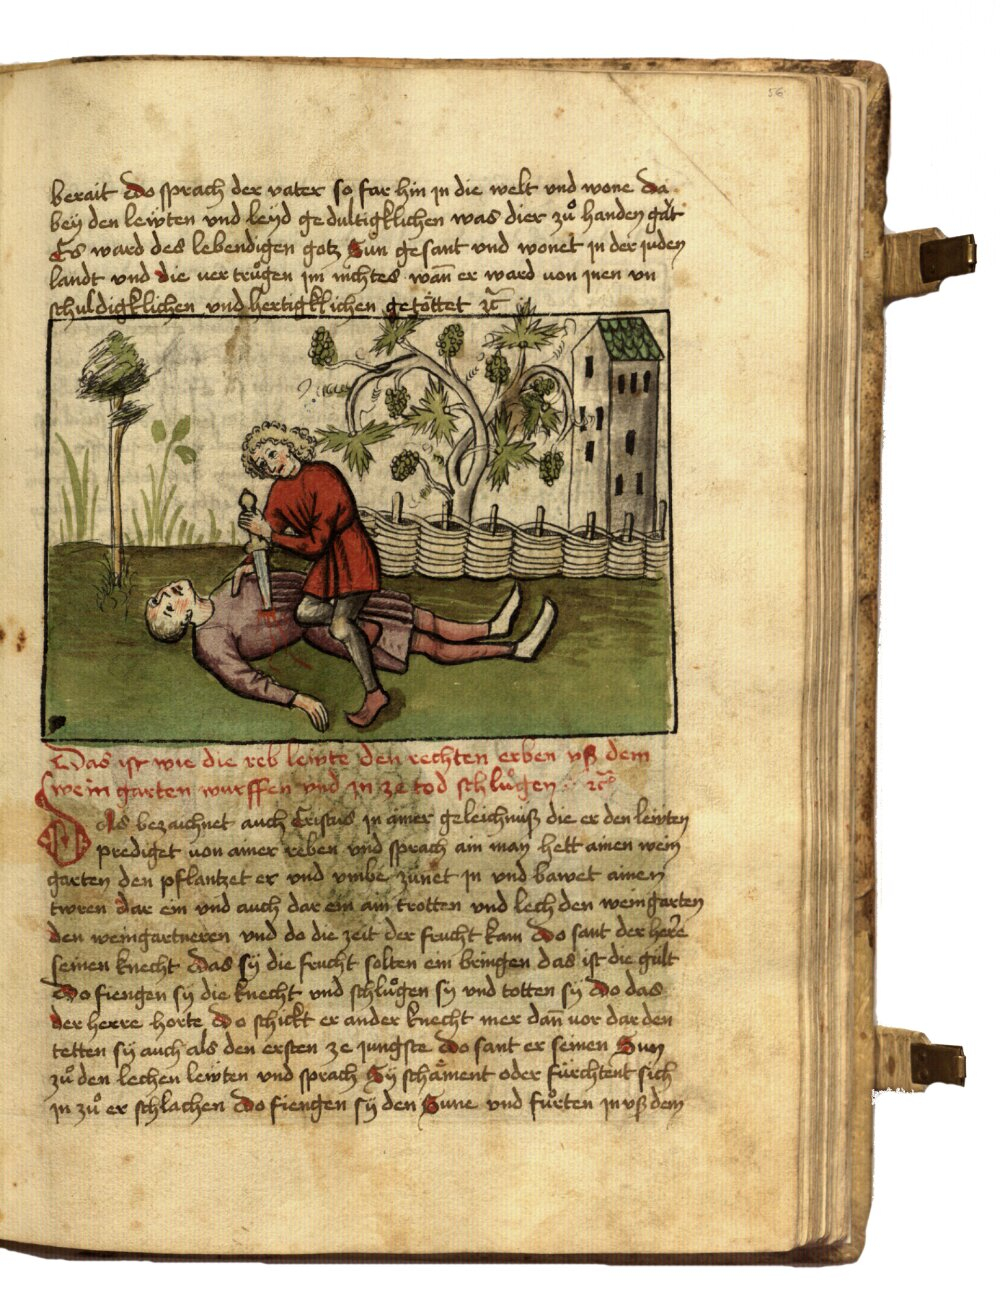 56
berait Do sprach der vater so far hin in die welt vnd wone da
bey den lewten vnd leyd gedultigklichen was dier zů handen gät
Es ward des lebendigen gotz Sůn gesant vnd wonet in der juden
landt vnd die vertrůgen im nichtes wan̄ er ward von inen vn
schuldigklichen vnd hertigklichen getöttet ꝛc̄
Das ist wie die reb lewte den rechten erben vß dem
wein garten wurffen vnd in ze tod schlůgen ꝛc̄
Das bezaichnet auch Cristus in ainer geleichniß die er den lewten
prediget von ainer reben vnd sprach ain man hett ainen wein
garten den pflantzet er vnd vmbe zünet in vnd bawet ainen
twren dar ein vnd auch dar ein ain trotten vnd lech den weingarten
den weingartneren vnd do die zeit der frucht kam Do sant der here
seinen knecht Das sy die frucht solten ein bringen das ist die gült
Do fiengen sy die knecht vnd schlůgen sy vnd totten sy Do das
der herre horte Do schickt er ander knecht mer dan̄ vor dar den
tetten sy auch als den ersten ze jungste Do sant er seinen Sun
zů den lechen lewten vnd sprach Sy schäment oder fürchtent sich
in zů er schlachen Do fiengen sy den Sune vnd fůrten in vß dem